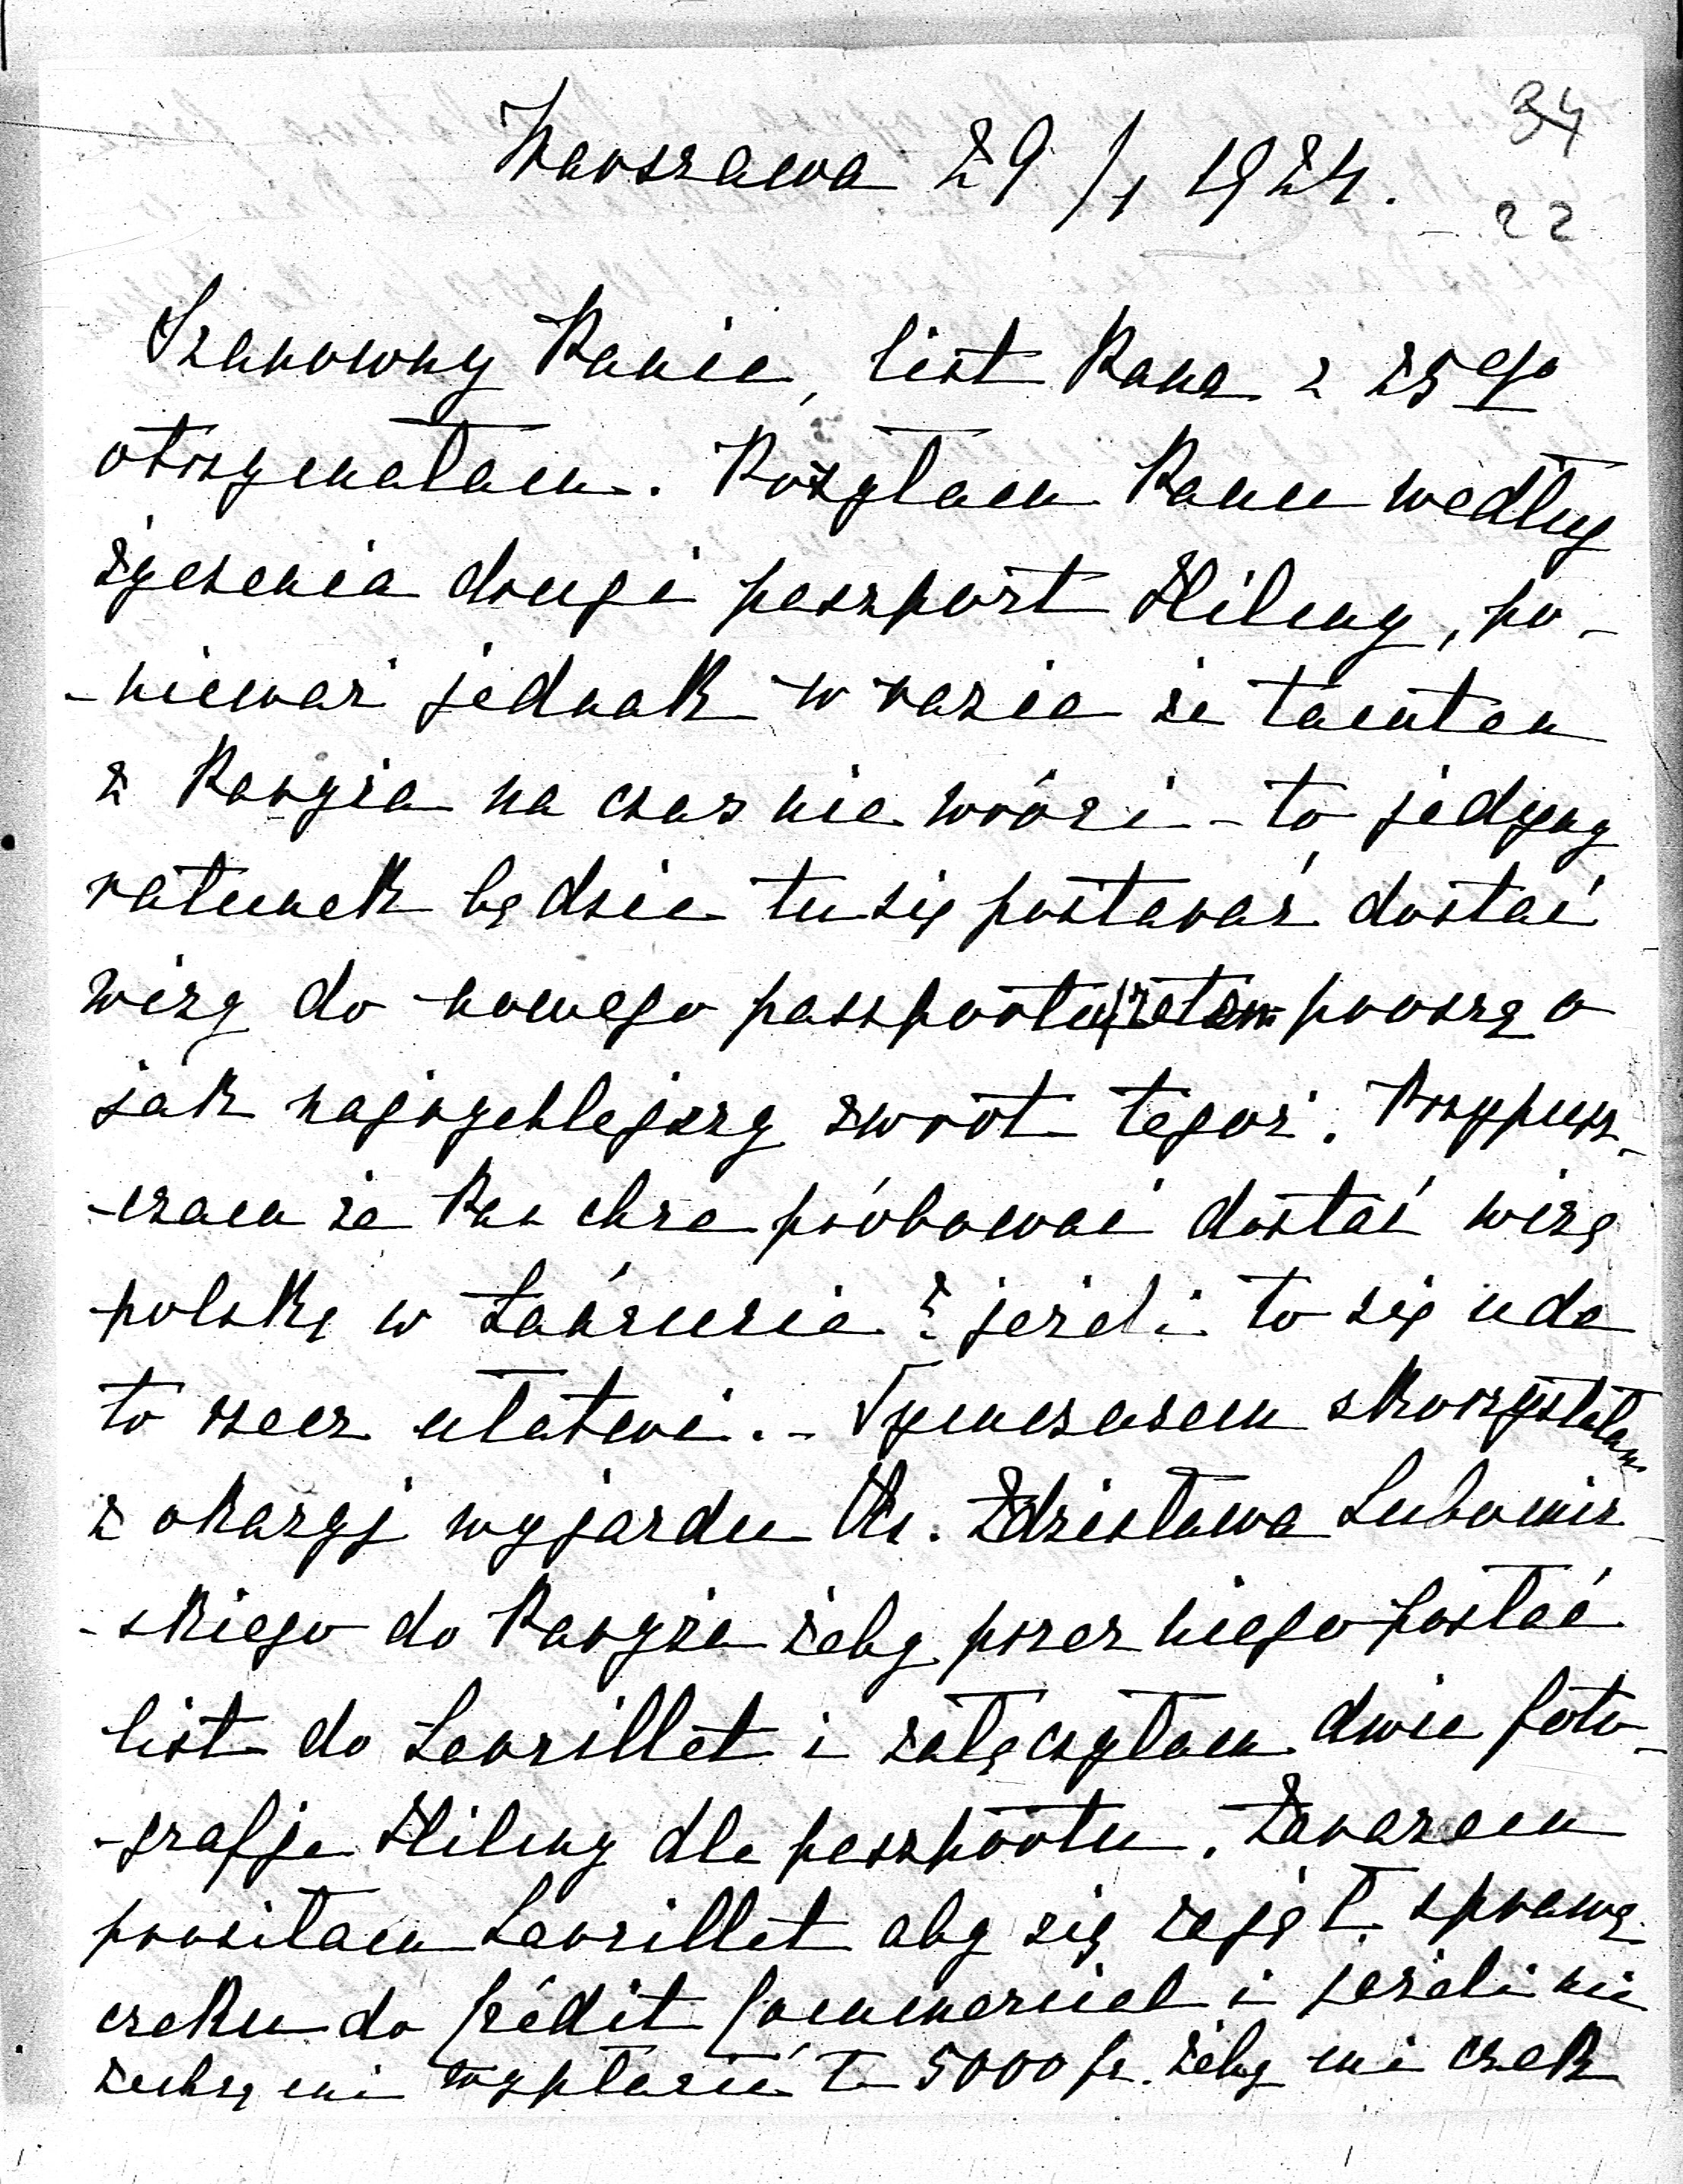 34
Warszawa 29/1 1924.
22
Szanowny Panie, list Pana z 25go
otrzymałam. Posyłam Panu według
życzenia drugi paszport Hilmy, po-
-nieważ jednak w razie że tamten
z Paryża na czas nie wróci - to jedyny
ratunek będzie tu się postarać dostać
wizę do nowego paszportu, zatem proszę o
jak najrychlejszy zwrot tegoż. Przypusz-
-czam że Pan chce próbować dostać wizę
polską w Łańcucie? jeżeli to się uda
to rzecz ułatwi. - Tymczasem skorzystałam
z okazyj wyjazdu Ks. Zdzisława Lubomir-
-skiego do Paryża żeby przez niego posłać
list do Leurillet i załączyłam dwie foto-
-grafje Hilmy dla paszportu. Zarazem
prosiłam Leurillet aby się zajął sprawą
czeku do Crédit Commercial i jeżeli nie
zechcą mi wypłacić te 5000 fr. żeby mi czek